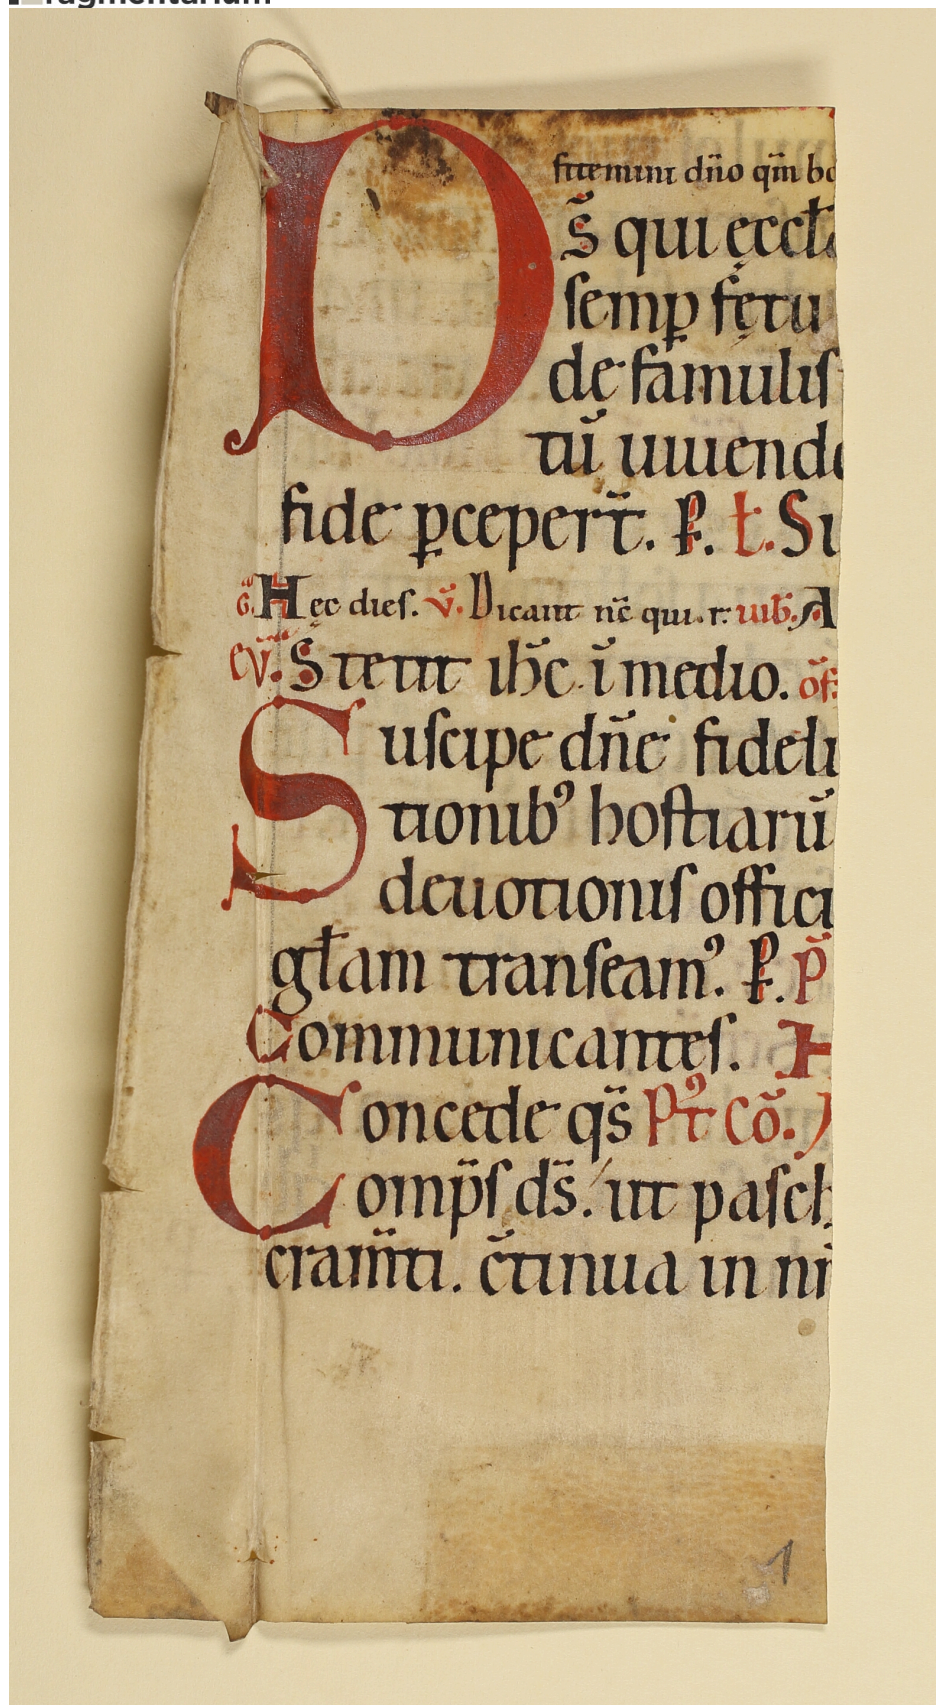 fragmentarium
fitemini dn̄o qm̄ bo
D s̄ qui ęccła
semp̲ fętu
de famulis
tū uiuendo
fide p̲ceper̄t. P̲. ł. Si
G̃. Hęc dies. v̄. Dicant nc̄ qui. r. uib̄. A
ev̄. Stetit ih̄c ī medio. of̄.
Suscipe dn̄e fideli
tionib⁹ hostiarū
deuotionis offici
głam transeam⁹. P̲. P̄
Communicantes. H
Concede qs̄ P⁹t cō.
Comp̄s ds̄. ut pasch
cram̄ti. c̄tinua in n
1